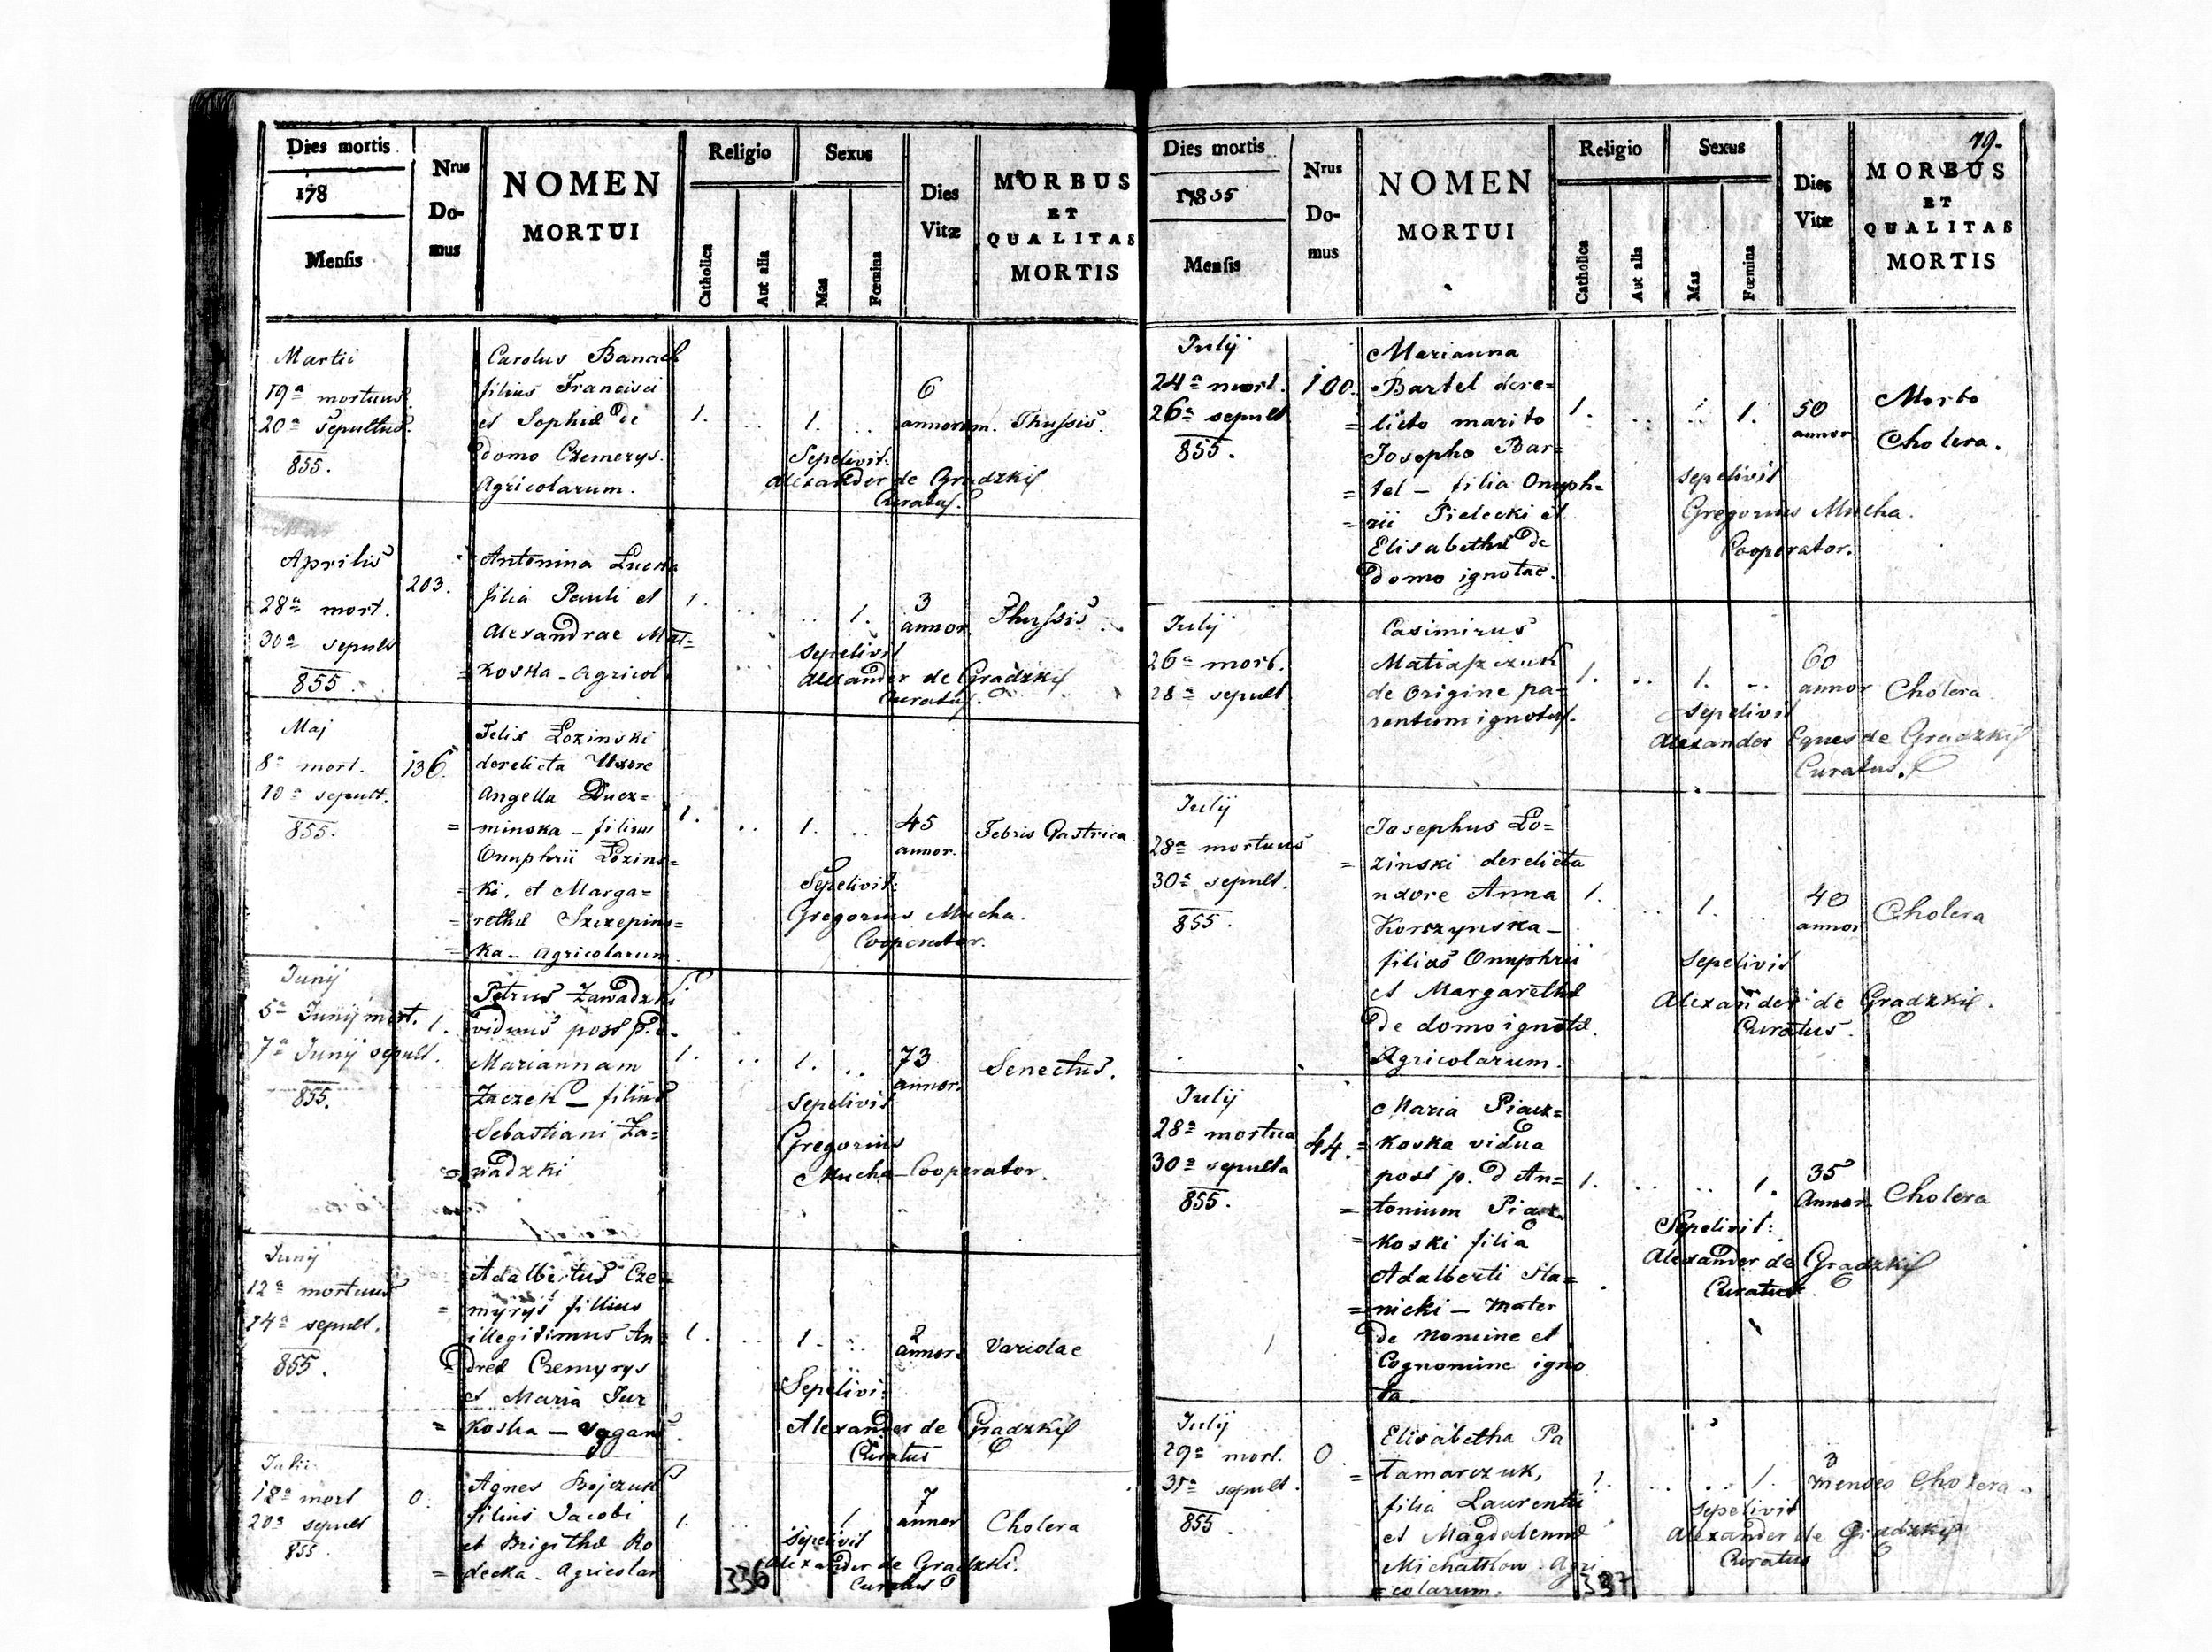 Dies mortis
178
Mensis
Nrus
Do-
mus
NOMEN
MORTUI
Religio
Catholica
Aut alia
Sexus
Mas
Fœmina
Dies
Vitæ
MORBUS
ET
QUALITAS
MORTIS
Martii
19a mortuus
20a Sepultus.
855.
Carolus Banach
filius Francisci
et Sophiæ de
domo Czemerys.
Agricolarum.
1.
1.
6
annorum.
Thyssis.
Sepelivit:
Alexander de Gradzki
Curatus.
Aprilis
28a mort.
30a sepult
855.
203.
Antonina
filia Pauli et
Alexandrae Mat=
=koska - Agricol
1.
1.
3
annor
Thyssis
sepelivit
Alexander de Gradzki
Curatus.
Maj
8a mort.
10a sepult.
855.
136.
Felix Łozinski
derelicta Uxore
Angella Ducz=
=minska - filius
Onuphrii Łozins=
=ki, et Marga=
=rethæ Szczepins=
=ka - Agricolarum
1.
1.
45
annor.
Febris Gastrica
Sepelivit:
Gregorius Mucha.
Cooperator.
Junij
5a Junij mort.
7a Junij sepult.
855.
1.
Petrus Zawadzki
viduus post p. d.
Mariannam
Zaczek - filius
Sebastiani Za=
=wadzki
1.
1.
73
annor.
Senectus.
Sepelivit
Gregorius
Mucha - Cooperator.
Junij
12a mortuus
14a sepult.
855.
Adalbertus Cze=
=myrys filius
illegitimus An
=dreæ Czemyrys
et Maria Jur
=koska - vagans
1.
1.
2
annor.
Variolae
Sepelivit
Alexander de Gradzki
Curatus
18a mort
20a sepult
855
0.
Agnes Bojczuk
filius Jacobi
et Brigithæ Ro
=decka - Agricolar
1.
1
7
annor
Cholera
Sepelivit
Alexander de Gradzki.
Curatus
336
79.
Dies mortis
17855
Mensis
Nrus
Do-
mus
NOMEN
MORTUI
Religio
Catholica
Aut alia
Sexus
Mas
Fœmina
Dies
Vitæ
MORBUS
ET
QUALITAS
MORTIS
Julij
24a mort.
26a sepult
855.
100.
Marianna
Bartel dere=
=licto marito
Josepho Bar=
=tel - filia Onuph=
=rii Pielecki et
Elisabethæ de
domo ignotae.
1.
1.
50
annor
Morbo
Cholera.
sepelivit
Gregorius Mucha.
Cooperator.
Julij
26a mort.
28a sepult
Casimirus
Matiaszczuk
de Origine pa=
rentum ignotus.
1.
1.
60
annor
Cholera
sepelivit
Alexander Eques de Gradzki
Curatus.
Julij
28a mortuus
30a sepult.
855.
Josephus Ło=
=zinski derelicta
uxore Anna
Korszynska -
filius Onuphrii
et Margarethæ
de domo ignotæ.
Agricolarum.
1.
1.
40
annor
Cholera
Sepelivit
Alexander de Gradzki.
Curatus.
Julij
28a mortua
30a sepulta
855.
44.
Maria Piacz=
=koska vidua
post p. d An=
=tonium Piacz
=koski filia
Adalberti Sta=
=nicki - Mater
de Nomine et
Cognomine igno
ta
1.
1.
35
Annor.
Cholera
Sepelivit:
Alexander de Gradzki
Curatus.
Julij
29a mort.
31a sepult.
855.
0
Elisabetha Pa
=tamarczuk,
filia Laurentii
et Magdalennæ
Michatkow Agri
=colarum.
1.
1.
3
menses
Cholera
sepelivit
Alexander de Gradzki
Curatus
337